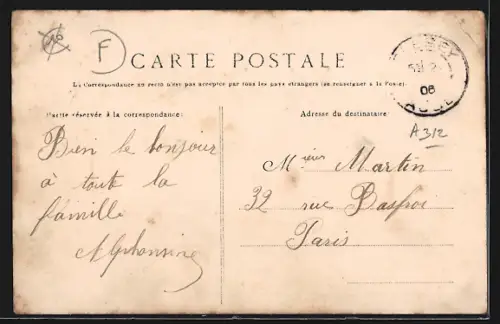 F
CARTE POSTALE
La Correspondance au recto n'est pas acceptée par tous les pays étrangers (se renseigner à la Poste).
Partie réservée à la correspondance:
Adresse du destinataire:
06
A312
Bien le bonjour
à toute la
famille
Alphonsine
Mieur Martin
32 rue Basfroi
Paris